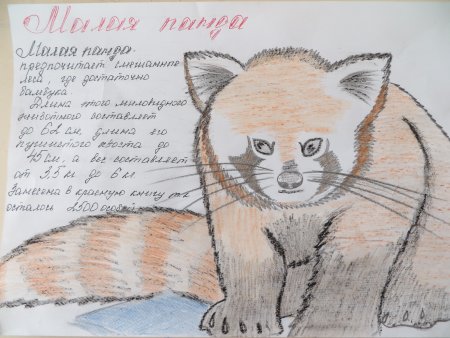 Малая панда
Малая панда
предпочитает смешанные
леса, где достаточно
бамбука.
Длина этого миловидного
животного составляет
до 62 см, длина его
пушистого хвоста до
45 см, а вес составляет
от 3,5 кг до 6 кг
Занесена в красную книгу
осталось 2500 особей